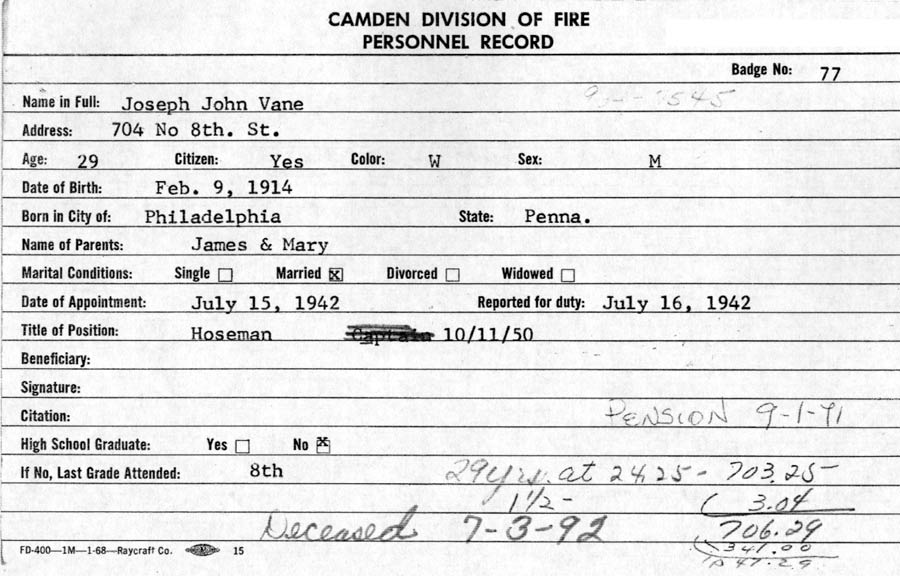 CAMDEN DIVISION OF FIRE
PERSONNEL RECORD
Badge No: 77
Name in Full: Joseph John Vane
Address: 704 No 8th. St.
Age: 29 Citizen: Yes Color: W Sex: M
Date of Birth: Feb. 9, 1914
Born in City of: Philadelphia State: Penna.
Name of Parents: James & Mary
Marital Conditions: Single Married Divorced Widowed
Date of Appointment: July 15, 1942 Reported for duty: July 16, 1942
Title of Position: Hoseman Captain 10/11/50
Beneficiary:
Signature:
Citation: PENSION 9-1-71
High School Graduate: Yes No
If No, Last Grade Attended: 8th 29 yrs. at 24.25 - 703.25
1 1/2 - 3.04
Deceased 7-3-92 706.29
341.00
FD-400—1M—1-68—Raycraft Co. 15